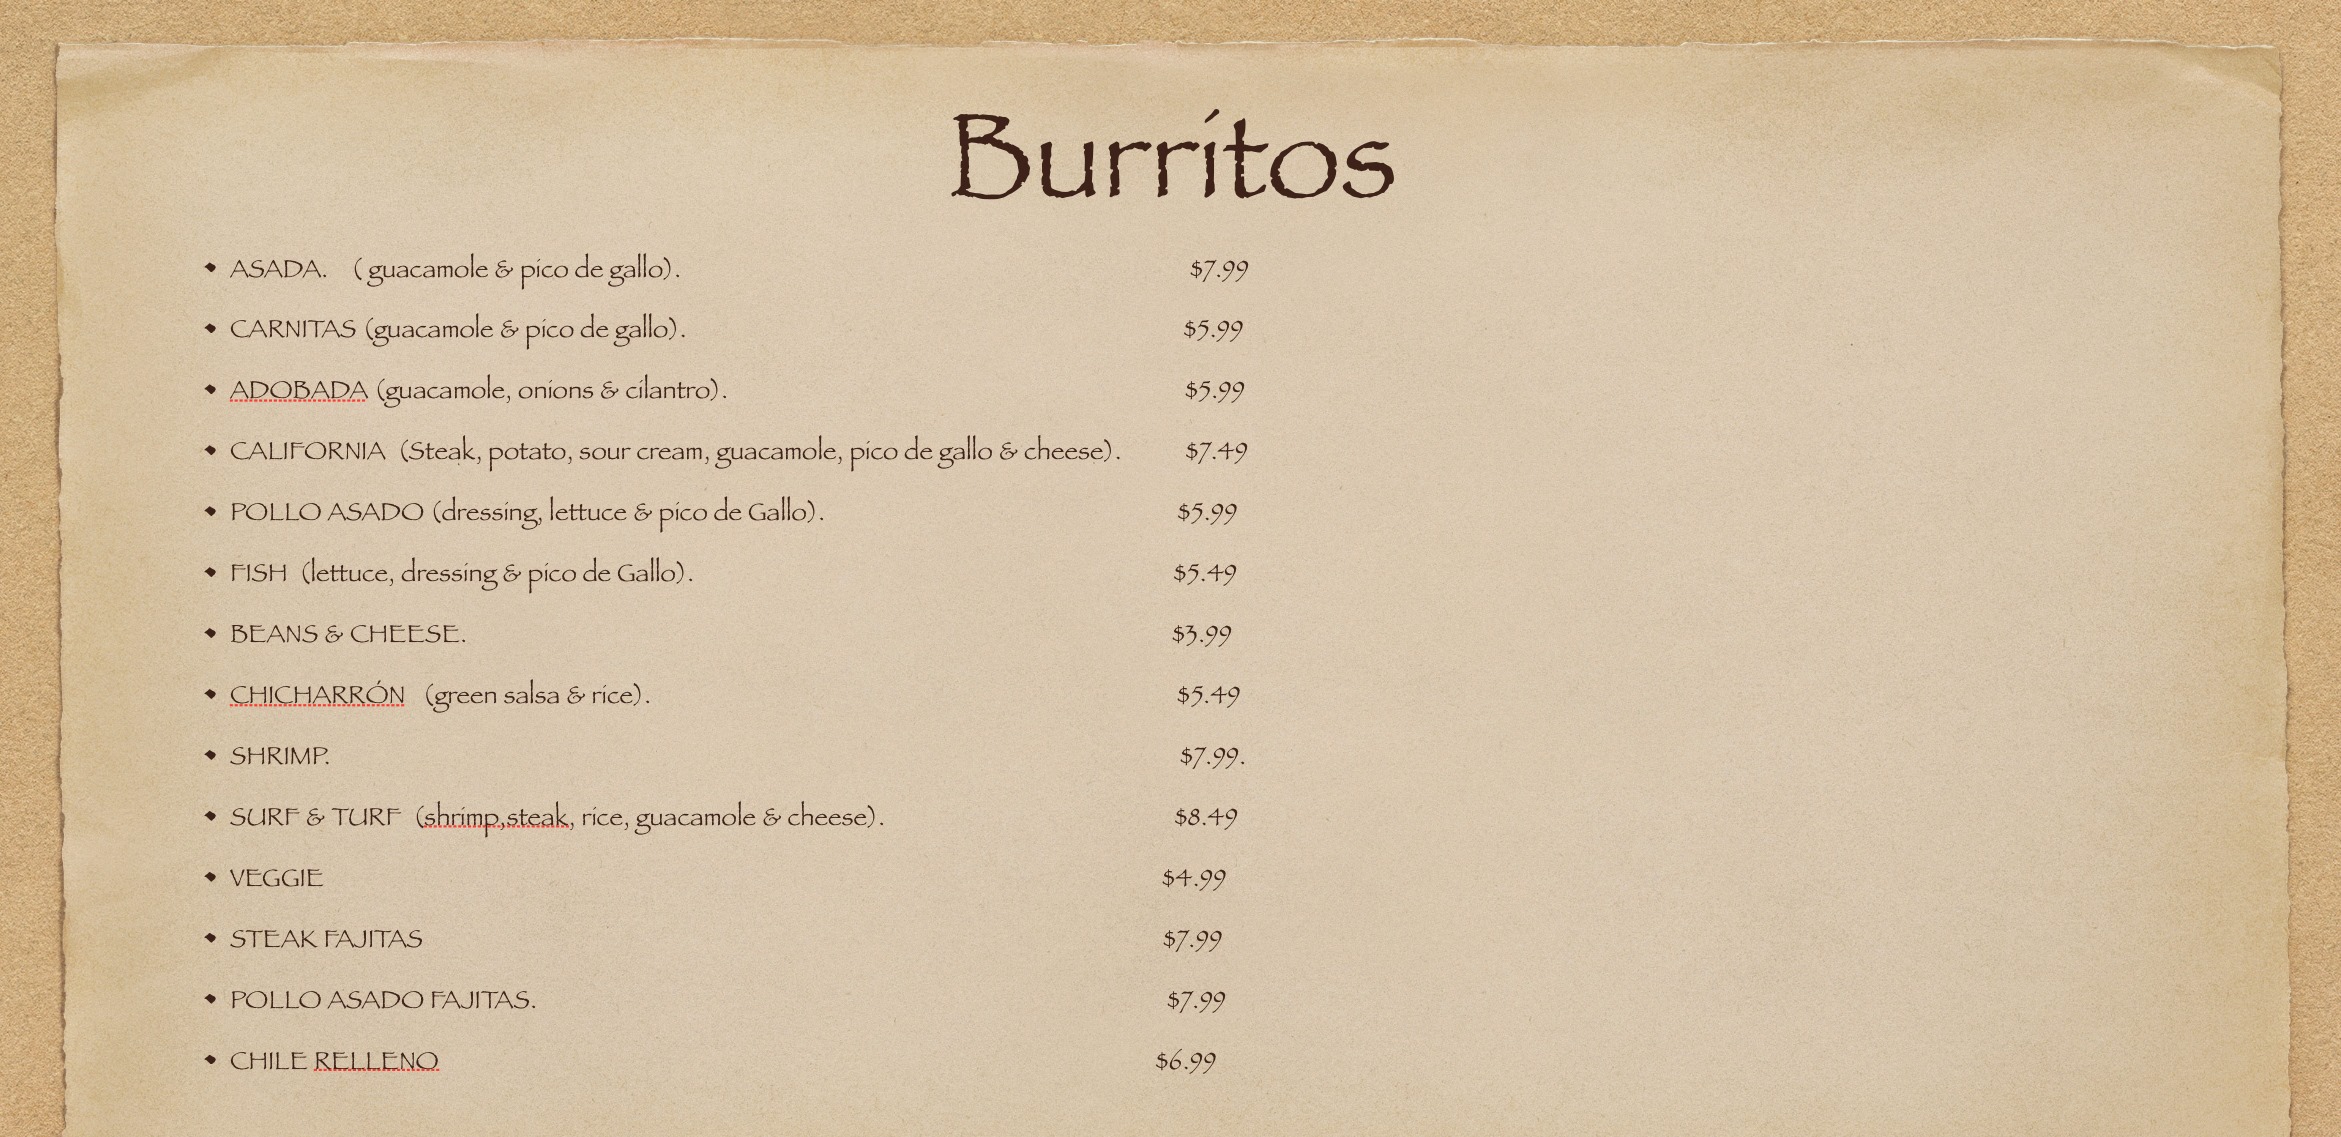 Burritos
• ASADA. ( guacamole & pico de gallo). $7.99
• CARNITAS (guacamole & pico de gallo). $5.99
• ADOBADA (guacamole, onions & cilantro). $5.99
• CALIFORNIA (Steak, potato, sour cream, guacamole, pico de gallo & cheese). $7.49
• POLLO ASADO (dressing, lettuce & pico de Gallo). $5.99
• FISH (lettuce, dressing & pico de Gallo). $5.49
• BEANS & CHEESE. $3.99
• CHICHARRÓN (green salsa & rice). $5.49
• SHRIMP. $7.99.
• SURF & TURF (shrimp,steak, rice, guacamole & cheese). $8.49
• VEGGIE $4.99
• STEAK FAJITAS $7.99
• POLLO ASADO FAJITAS. $7.99
• CHILE RELLENO $6.99